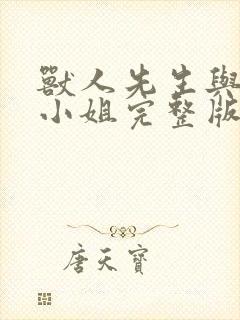 獸人先生與
小姐完整版
唐天寶